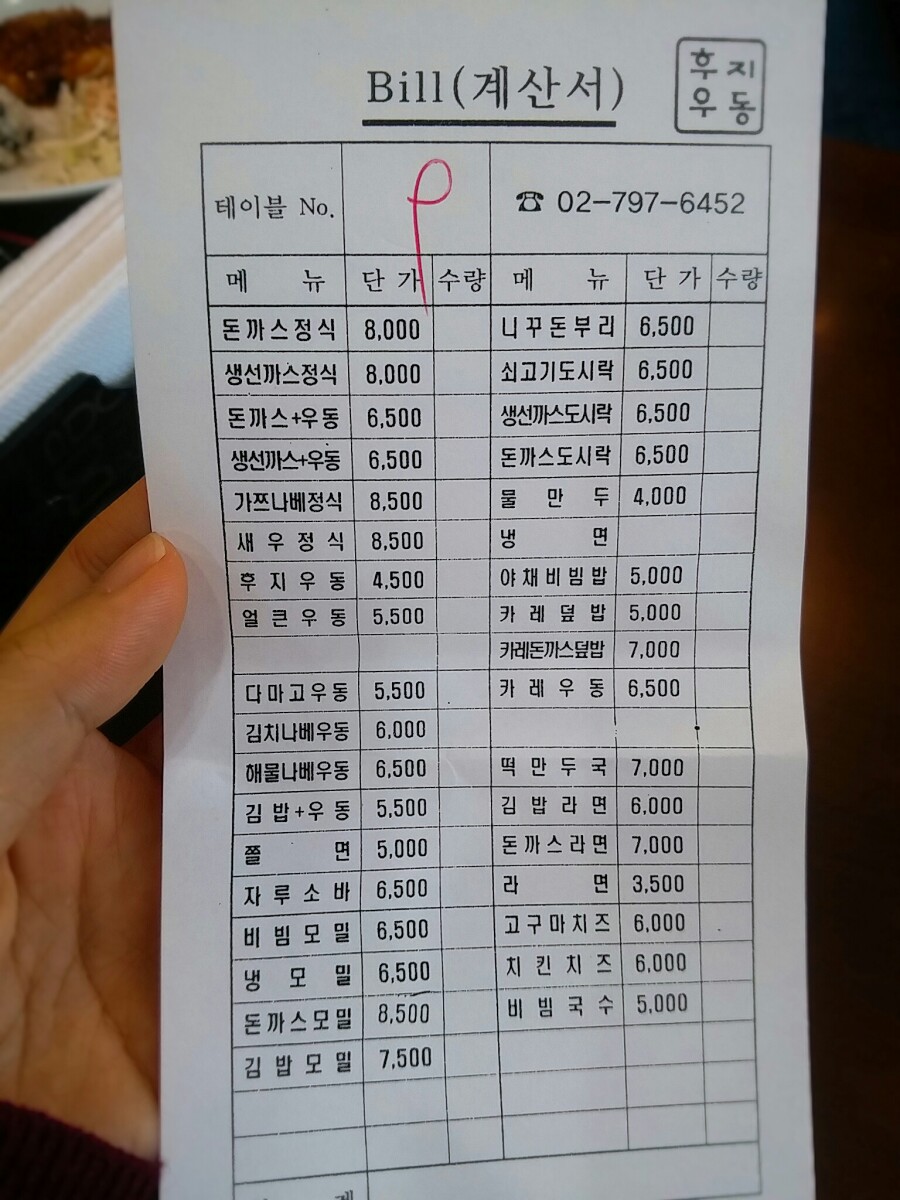 Bill(계산서)
후지
우동
테이블 No. 9 ☎ 02-797-6452
메 뉴 단 가 수량 메 뉴 단 가 수량
돈까스정식 8,000 니꾸돈부리 6,500
생선까스정식 8,000 쇠고기도시락 6,500
돈까스+우동 6,500 생선까스도시락 6,500
생선까스+우동 6,500 돈까스도시락 6,500
가쯔나베정식 8,500 물 만 두 4,000
새우정식 8,500 냉 면
후지우동 4,500 야채비빔밥 5,000
얼큰우동 5,500 카레덮밥 5,000
카레돈까스덮밥 7,000
다마고우동 5,500 카레우동 6,500
김치나베우동 6,000
해물나베우동 6,500 떡만두국 7,000
김밥+우동 5,500 김밥라면 6,000
쫄 면 5,000 돈까스라면 7,000
자루소바 6,500 라 면 3,500
비빔모밀 6,500 고구마치즈 6,000
냉 모 밀 6,500 치킨치즈 6,000
돈까스모밀 8,500 비빔국수 5,000
김밥모밀 7,500